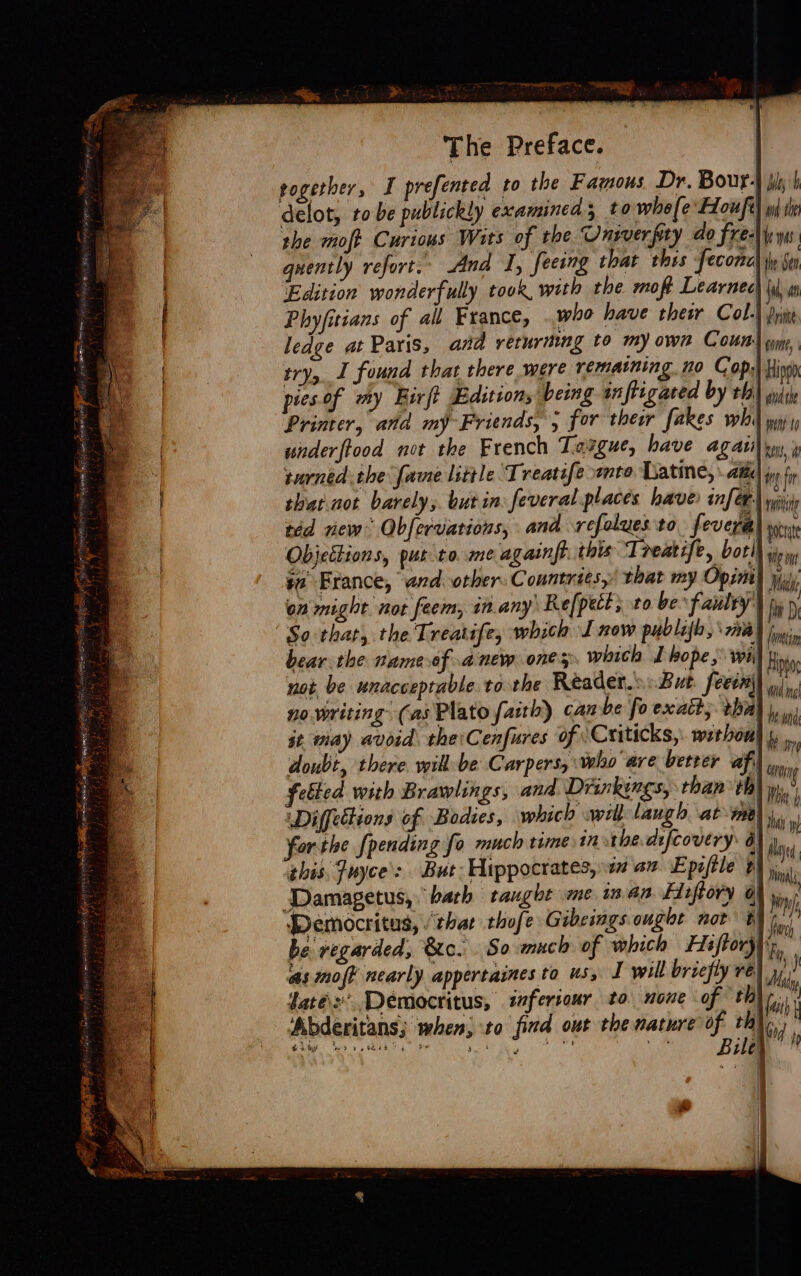 The Preface.
together, I preſented to the Famous Dr. Bour-
delot, to be publickly examined; to whoſe Houſe
the moſt Curious Wits of the Univerſity do fre-
quently reſort. And I, ſeeing that this ſecond
Edition wonderfully took with the moſt Learned
Phyſitians of all France, who have their Col-
ledge at Paris, and returning to my own Coun-
try, I found that there were remaining no Cop-
pies of my Firſt Edition, being inſtigated by th
Printer, and my Friends, ; for their ſakes wh
underſtood not the French Tongue, have again
turned the ſame little Treatiſe into Latine, and
that not barely, but in ſeveral places have inſer-
ted new Obſervations, and reſolves to ſevera
Objections, put to me againſt this Treatiſe, both
in France, and other Countries, that my Opini
on might not ſeem, in any Reſpect, to be faulty
So that, the Treatiſe, which I now publiſh, ma
bear the name of a new one; which I hope, wil
not be unacceptable to the Reader. But ſeeing
no writing (as Plato ſaith) can be ſo exact, that
it may avoid the Cenſures of Criticks, without
doubt, there will be Carpers, who are better af
fected with Brawlings, and Drinkings, than th
Diſſections of Bodies, which will laugh at me
for the ſpending ſo much time in the diſcovery o
this Juyce: But Hippocrates, in an Epiſtle t
Damagetus, hath taught me in an Hiſtory o
Democritus, that thoſe Gibeings ought not t
be regarded, &c. So much of which Hiſtory
as moſt nearly appertaines to us, I will briefly re
late: Democritus, inferiour to none of th
Abderitans; when, to find out the nature of th
Bile